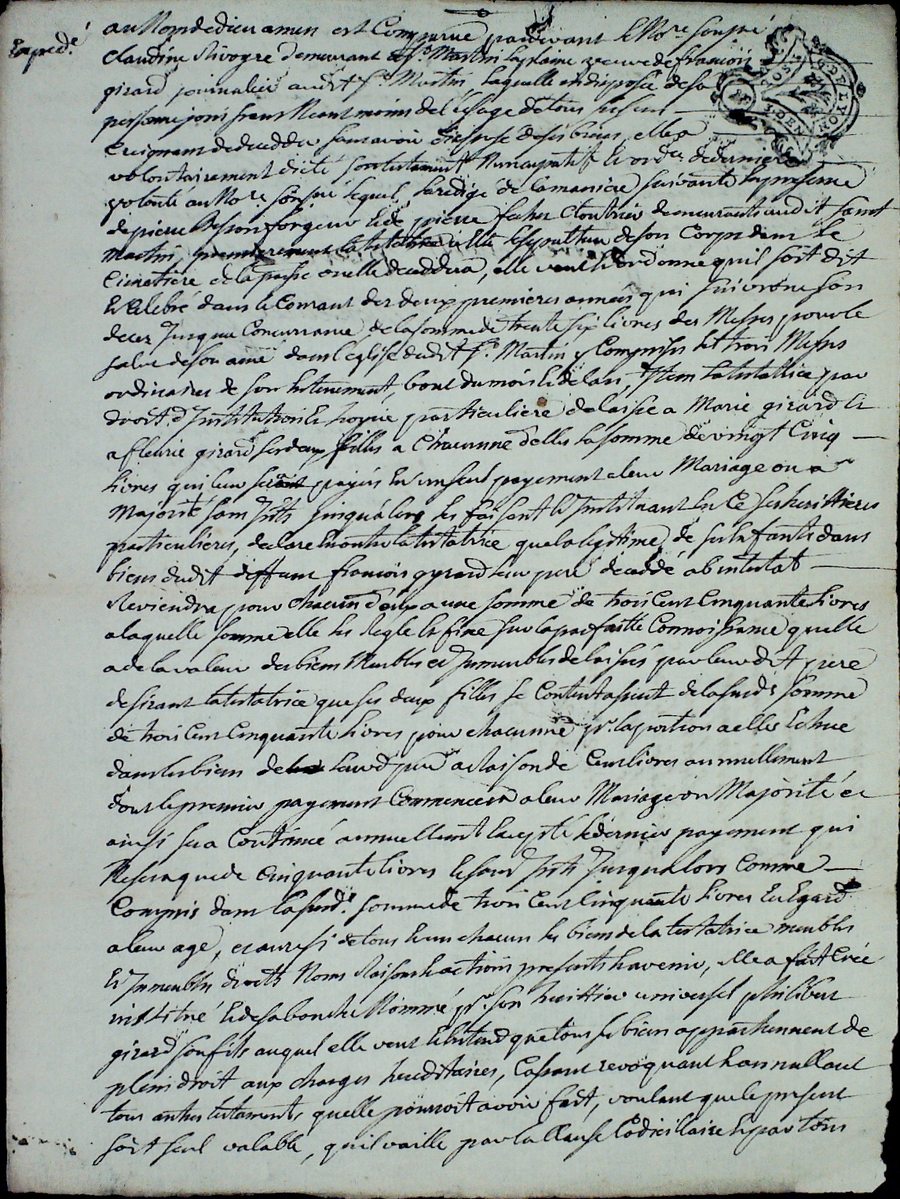 au Nom de dieu amen est Comparue pardevant le No.re soussé
Emp.de
claudine demeurant a St Martin la plaine veuve de françois
girard journalier audit St Martin laquelle indisposée de sa
personne jouissant Neant moins de l'usage de tous ses sens
Craignant de decedder sans avoir disposé de ses biens, elle a
volontairement dicté son testament Nuncupatif et ordre de derniere
volonté au No.re soussé lequel l'aredigé de la maniere suivante En presence
de pierre Besson forgeur et de pierre Cloutrier demeurants audit saint
Martin, premierement la testatrice Elit la sepulture de son Corps dans le
Cimetiere de la passe ou elle deceddera, elle veut et ordonne quil soit dit
Et Celebré dans le Courant des deux premieres années qui suivront son
deces Jusqua Concurrance de la somme de trente six livres des Messes pour le
salut de son ame dans leglise dudit St Martin y Comprises les trois Messes
ordinaires de son Enterrement, bout du mois et de lan, Item la testatrice par
droit d'Institution et hoirie particuliere delaisse a Marie girard Et
a fleurie girard ses deux filles a Chacunne d'elles la somme de vingt Cinq
Livres qui leur seront payées En un seul payement a leur Mariage ou a
Majorité sans Jnts jusqu'a lors les faisant et Instituant En Ce ses herittieres
particulieres, declare En outre la testatrice que la legitime de ses Enfants dans
biens dudit deffunt françois gyrard leur pere déceddé ab intestat
Reviendra pour chacun d'eux a une somme de trois Cent Cinquante Livres
a laquelle somme elle les Regle Et fixe sur la parfaitte Connoissance quelle
a de la valeur des biens Meubles et Jmmeubles delaissés par leurdit pere
desirant la testatrice que ses deux filles se Contentassent de la susd.e somme
de trois Cent Cinquante Livres pour chacunne pr. la portion a elles Echue
dans les biens de leurd. pere a Raison de Cent livres annuellement
dont le premier payement Commencera a leur Mariage ou Majorité et
ainsi sera Continué annuellement Excepté le dernier payement qui
Ne sera que de Cinquante livres le sans Jnts Jusqualors Comme
Compris dans la susd.e somme de trois Cent Cinquante Livres Eu Egard
a leur age, et au ressi de tous Et un chacun les biens de la testatrice meubles
Et Jmmeubles droits Noms Raisons Et actions presents Et avenir, Elle a fait Créé
institué Et de sa bouche Nommé pr. son heritier universel philibert
girard son fils auquel elle veut Et Entend que tous ses biens appartiennent de
plein droit aux charges hereditaires, Cassant revoquant Et annullant
tous autres testaments quelle pourroit avoir fait, voulant que le present
soit seul valable, quil vaille par la Clause Codicillaire Et par tous